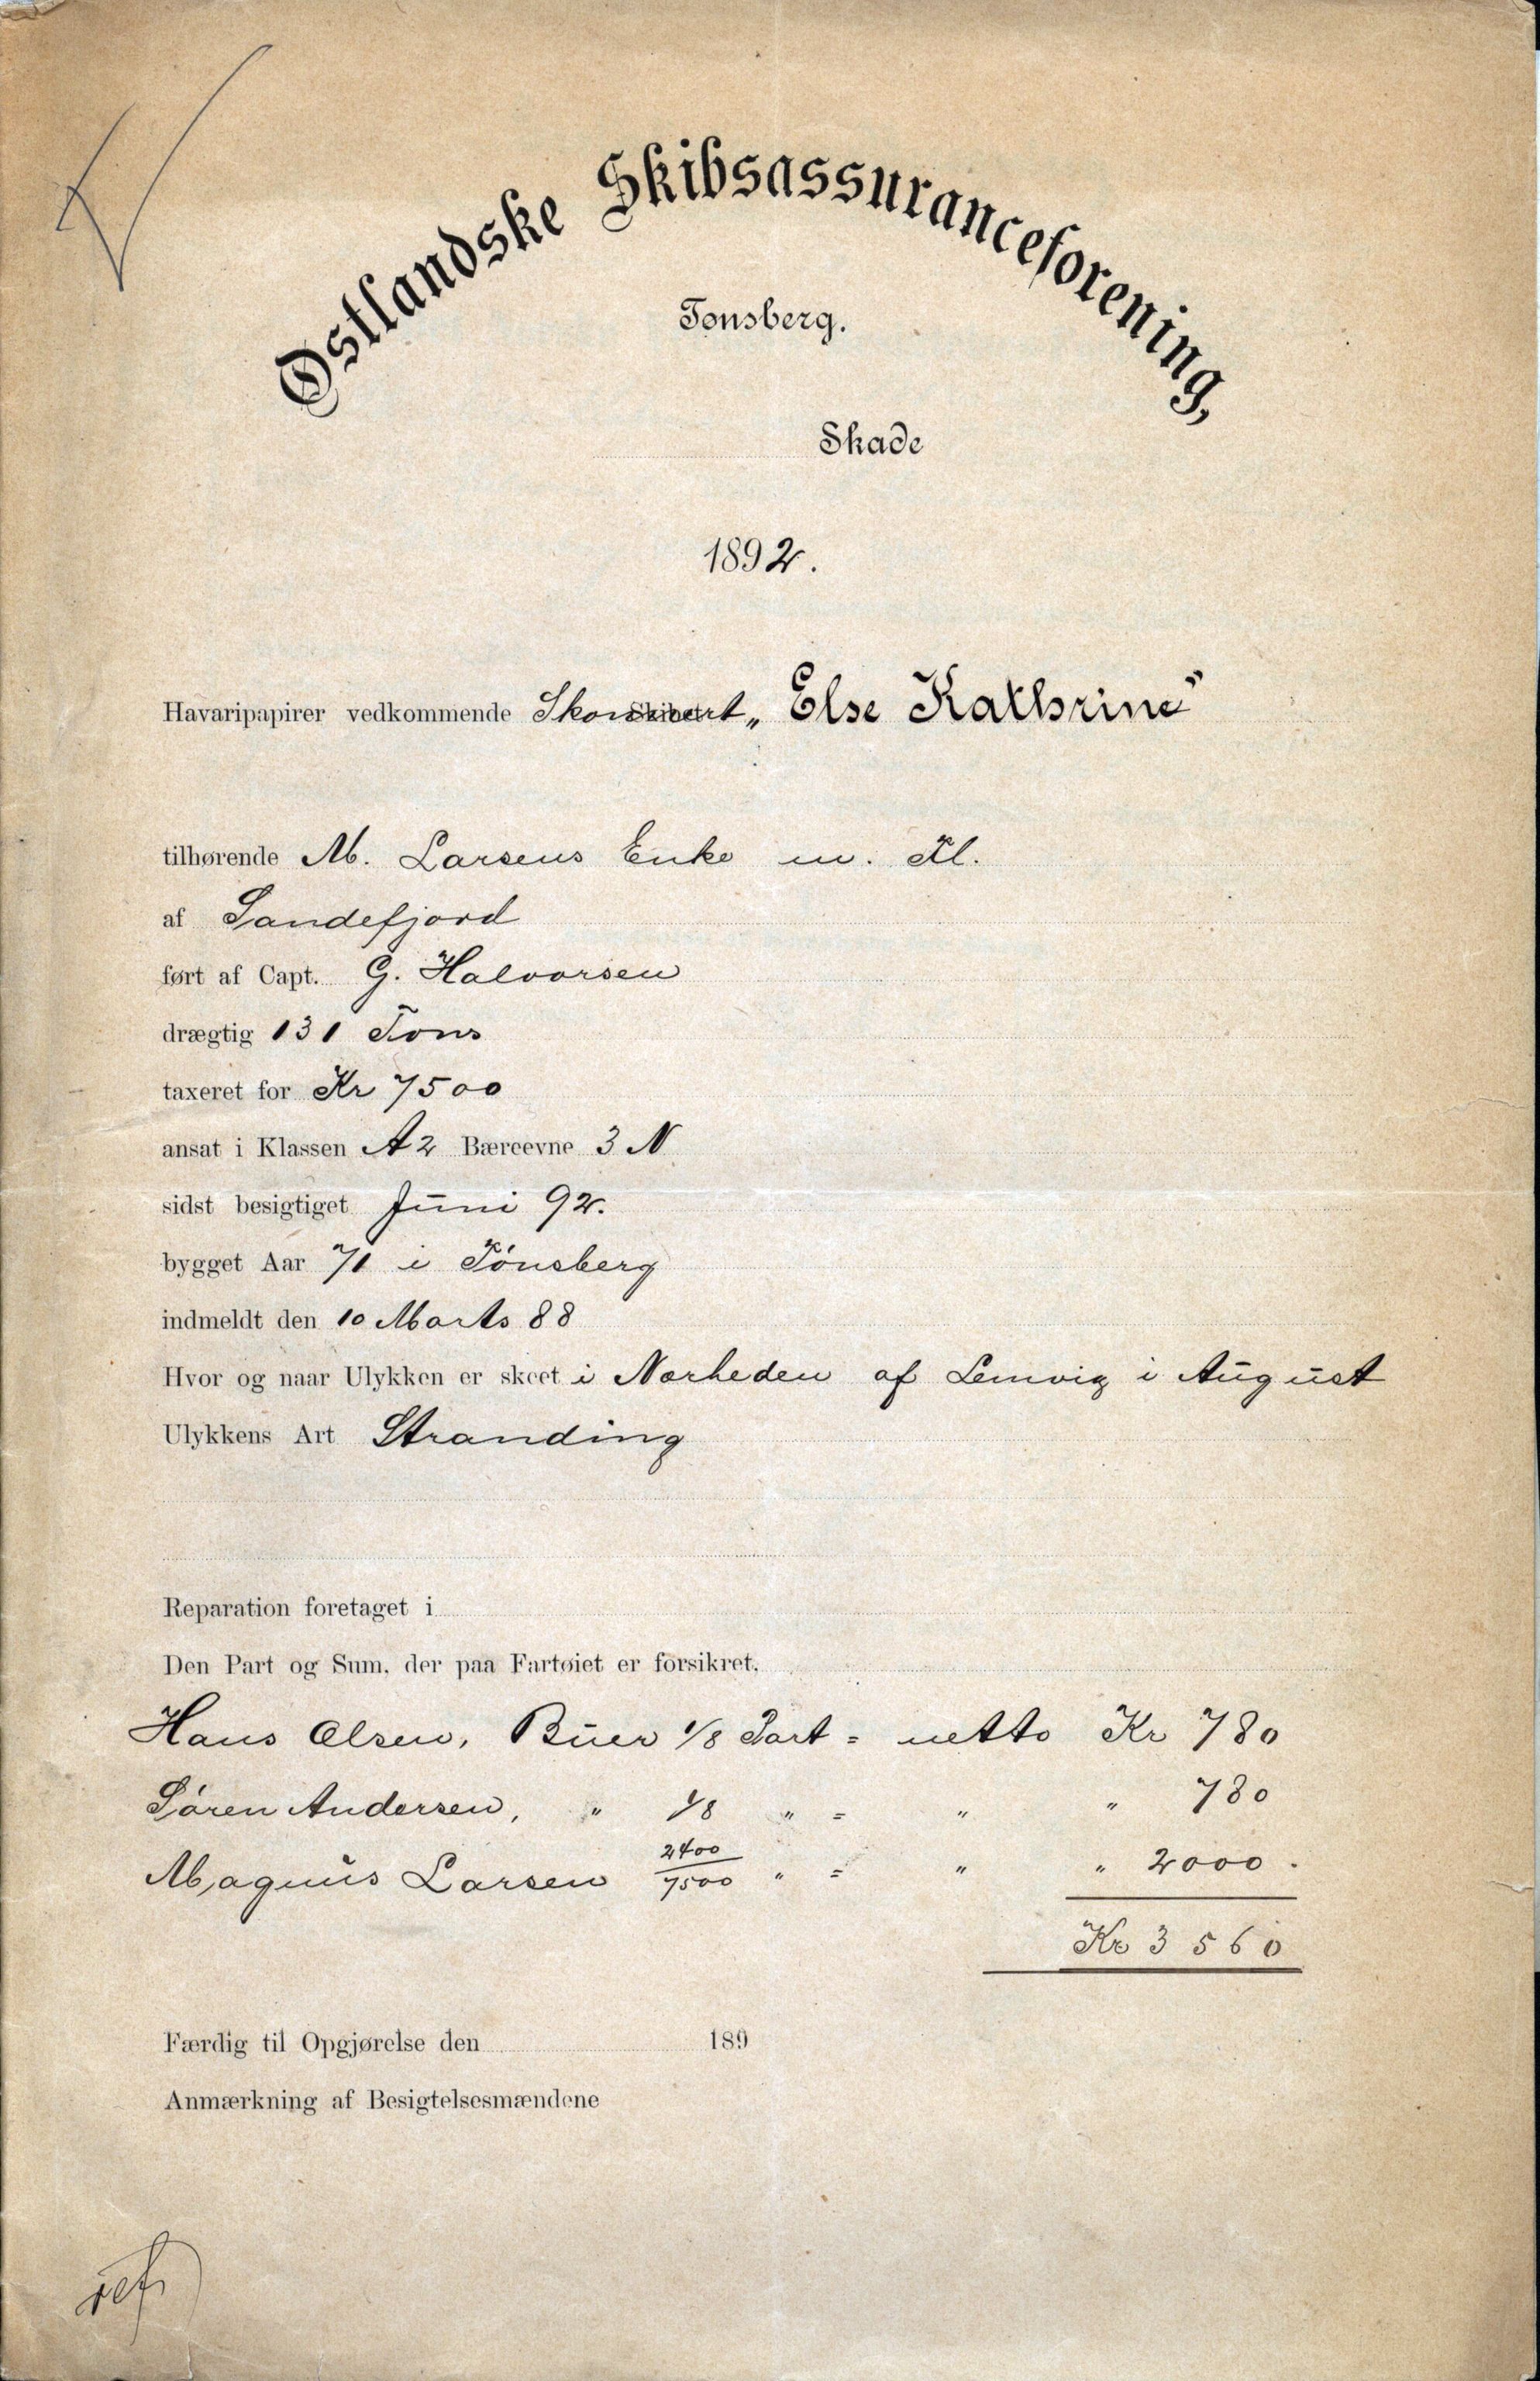 Østlandske Skibsassuranceforening,
Tønsberg.
Skade
1892.
Havaripapirer vedkommende Skonnert „Else Kathrine"
tilhørende M. Larsens Enke m. Fl.
af Sandefjord
ført af Capt. G. Halvorsen
drægtig 131 Tons
taxeret for Kr 7500
ansat i Klassen A2 Bæreevne 3 N
sidst besigtiget Juni 92.
bygget Aar 71 i Tønsberg
indmeldt den 10 Marts 88
Hvor og naar Ulykken er skeet i Nærheden af Lemvig i August
Ulykkens Art Stranding
Reparation foretaget i
Den Part og Sum, der paa Fartøiet er forsikret.
Hans Olsen, Buer 1/8 Part = netto Kr 780
Søren Andersen, " 1/8 " = " " 780
Magnus Larsen 2400/7500 " = " " 2000.
Kr 3560
Færdig til Opgjørelse den 189
Anmærkning af Besigtelsesmændene